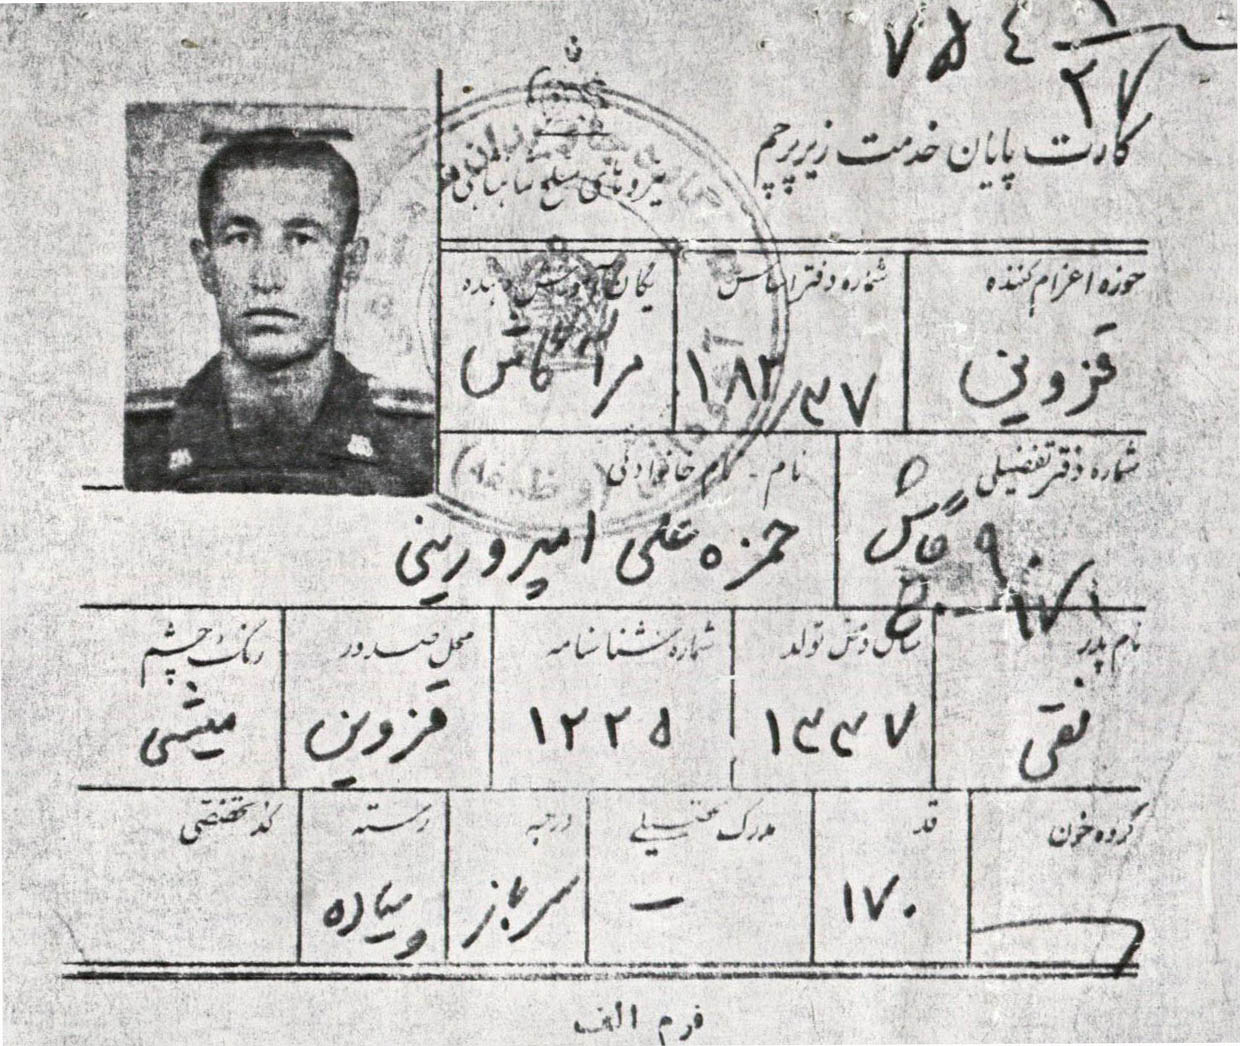 کارت پایان خدمت زیر پرچم
نیروهای مسلح شاهنشاهی
حوزه اعزام کننده
شماره دفتر اساس
یگان آموزش دهنده
قزوین
شماره دفتر تفضیلی
نام - نام خانوادگی
حمزه علی امیرورینی
نام پدر
سال و محل تولد
شماره شناسنامه
محل صدور
رنگ چشم
نقی
۱۳۳۷
۱۲۲۵
قزوین
میشی
گروه خون
قد
مدرک تحصیلی
درجه
رسته
کد تخصصی
۱۷۰
–
سرباز
پیاده
فرم الف